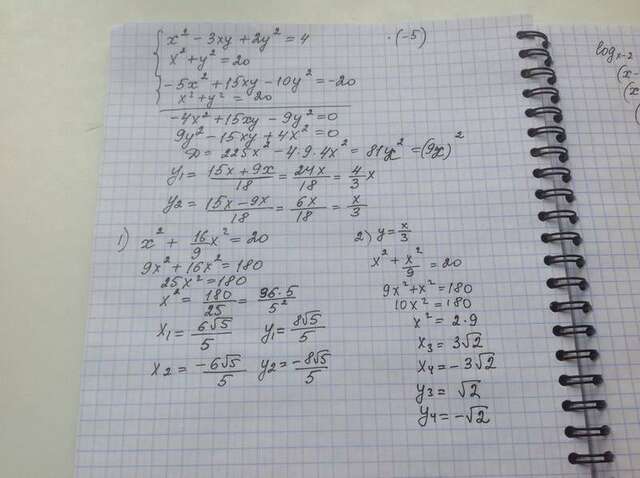 x² - 3xy + 2y² = 4 · (-5)
x² + y² = 20
-5x² + 15xy - 10y² = -20
x² + y² = 20
-4x² + 15xy - 9y² = 0
9y² - 15xy + 4x² = 0
D = 225x² - 4·9·4x² = 81x² = (9x)²
y₁ = (15x + 9x)/18 = 24x/18 = 4/3 x
y₂ = (15x - 9x)/18 = 6x/18 = x/3
1) x² + 16/9 x² = 20
9x² + 16x² = 180
25x² = 180
x² = 180/25 = 96·5/5²
x₁ = 6√5/5 y₁ = 8√5/5
x₂ = -6√5/5 y₂ = -8√5/5
2) y = x/3
x² + x²/9 = 20
9x² + x² = 180
10x² = 180
x² = 2·9
x₃ = 3√2
x₄ = -3√2
y₃ = √2
y₄ = -√2
log x-2
(x
(x